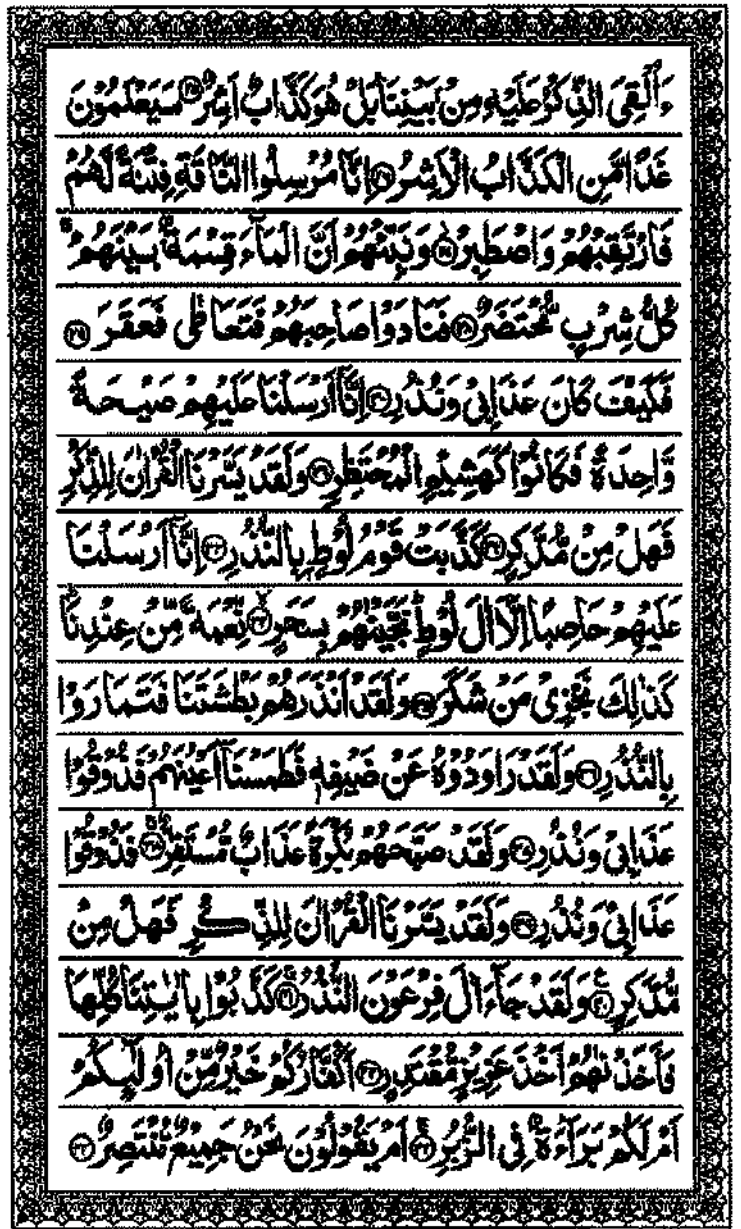 ءَاُلْقِيَ الذِّكْرُ عَلَيْهِ مِنْۢ بَيْنِنَا بَلْ هُوَ كَذَّابٌ اَشِرٌ ﴿۲۵﴾ سَيَعْلَمُوْنَ
غَدًا مَّنِ الْكَذَّابُ الْاَشِرُ ﴿۲۶﴾ اِنَّا مُرْسِلُوا النَّاقَةِ فِتْنَةً لَّهُمْ
فَارْتَقِبْهُمْ وَاصْطَبِرْ ﴿۲۷﴾ وَنَبِّئْهُمْ اَنَّ الْمَآءَ قِسْمَةٌۢ بَيْنَهُمْ ۚ
كُلُّ شِرْبٍ مُّحْتَضَرٌ ﴿۲۸﴾ فَنَادَوْا صَاحِبَهُمْ فَتَعَاطٰى فَعَقَرَ ﴿۲۹﴾
فَكَيْفَ كَانَ عَذَابِيْ وَنُذُرِ ﴿۳۰﴾ اِنَّآ اَرْسَلْنَا عَلَيْهِمْ صَيْحَةً
وَّاحِدَةً فَكَانُوْا كَهَشِيْمِ الْمُحْتَظِرِ ﴿۳۱﴾ وَلَقَدْ يَسَّرْنَا الْقُرْاٰنَ لِلذِّكْرِ
فَهَلْ مِنْ مُّدَّكِرٍ ﴿۳۲﴾ كَذَّبَتْ قَوْمُ لُوْطٍۭ بِالنُّذُرِ ﴿۳۳﴾ اِنَّآ اَرْسَلْنَا
عَلَيْهِمْ حَاصِبًا اِلَّآ اٰلَ لُوْطٍ ؕ نَجَّيْنٰهُمْ بِسَحَرٍ ﴿۳۴﴾ نِّعْمَةً مِّنْ عِنْدِنَا ؕ
كَذٰلِكَ نَجْزِيْ مَنْ شَكَرَ ﴿۳۵﴾ وَلَقَدْ اَنْذَرَهُمْ بَطْشَتَنَا فَتَمَارَوْا
بِالنُّذُرِ ﴿۳۶﴾ وَلَقَدْ رَاوَدُوْهُ عَنْ ضَيْفِهٖ فَطَمَسْنَآ اَعْيُنَهُمْ فَذُوْقُوْا
عَذَابِيْ وَنُذُرِ ﴿۳۷﴾ وَلَقَدْ صَبَّحَهُمْ بُكْرَةً عَذَابٌ مُّسْتَقِرٌّ ﴿۳۸﴾ فَذُوْقُوْا
عَذَابِيْ وَنُذُرِ ﴿۳۹﴾ وَلَقَدْ يَسَّرْنَا الْقُرْاٰنَ لِلذِّكْرِ فَهَلْ مِنْ
مُّدَّكِرٍ ﴿۴۰﴾ وَلَقَدْ جَآءَ اٰلَ فِرْعَوْنَ النُّذُرُ ﴿۴۱﴾ كَذَّبُوْا بِاٰيٰتِنَا كُلِّهَا
فَاَخَذْنٰهُمْ اَخْذَ عَزِيْزٍ مُّقْتَدِرٍ ﴿۴۲﴾ اَكُفَّارُكُمْ خَيْرٌ مِّنْ اُولٰٓئِكُمْ
اَمْ لَكُمْ بَرَآءَةٌ فِي الزُّبُرِ ﴿۴۳﴾ اَمْ يَقُوْلُوْنَ نَحْنُ جَمِيْعٌ مُّنْتَصِرٌ ﴿۴۴﴾